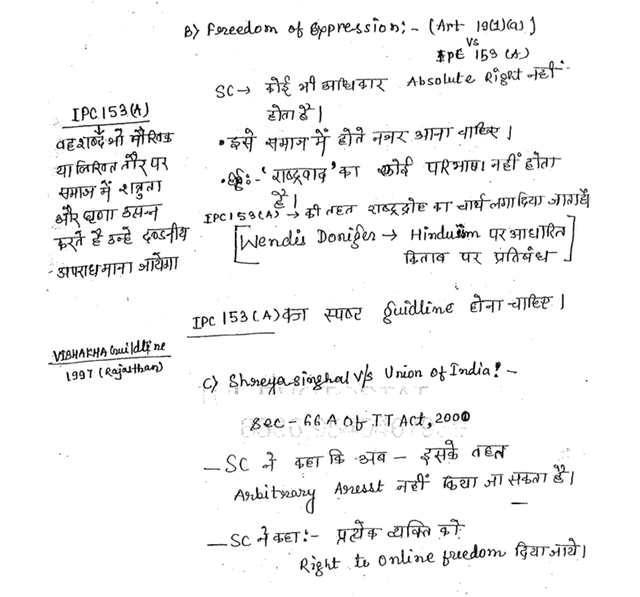 B) Freedom of Expression:- (Art 19(1)(a))
Vs
IPC 153 (A)
SC → कोई भी अधिकार Absolute Right नहीं
होता है।
• इसे समाज में होते नजर आना चाहिए।
'राष्ट्रवाद' का कोई परिभाषा नहीं होता
है।
IPC153(A) → की तहत राष्ट्रद्रोह का चार्ज लगा दिया जाता है।
[Wendis Doniger → Hinduism पर आधारित
किताब पर प्रतिबंध]
IPC 153(A)
वह शब्द भी मौखिक
या लिखित तौर पर
समाज में शत्रुता
और घृणा उत्पन्न
करते है उन्हे दण्डनीय
अपराध माना जायेगा
IPC 153(A) का स्पष्ट guidline होना चाहिए।
VIBHAKHA Guildline
1997 (Rajasthan)
C) Shreya singhal v/s Union of India! -
Sec - 66A Of IT Act, 2000
— SC ने कहा कि अब - इसके तहत
Arbitrary Aresst नहीं किया जा सकता है।
— SC ने कहा:- प्रत्येक व्यक्ति को
Right to Online freedom दिया जाये।